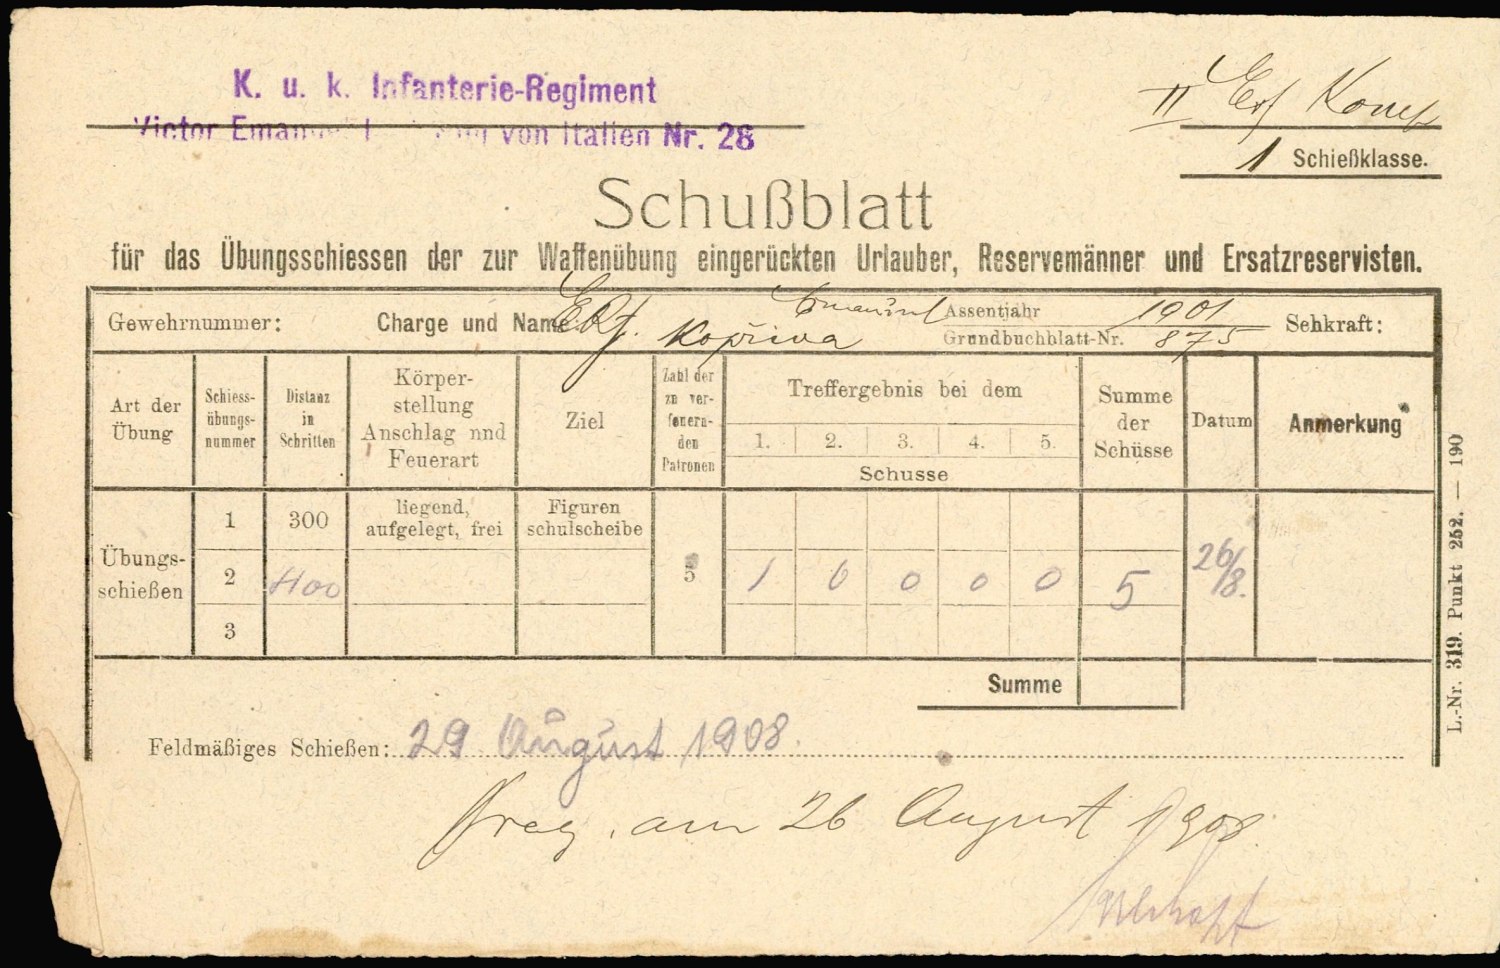 K. u. k. Infanterie-Regiment
Victor Emanuel von Italien Nr. 28
II Ers Komp
1 Schießklasse.
Schußblatt
für das Übungsschiessen der zur Waffenübung eingerückten Urlauber, Reservemänner und Ersatzreservisten.
Gewehrnummer: Charge und Name Kopřiva Emanuel Assentjahr 1901 Grundbuchblatt-Nr. 875 Sehkraft:
Art der Übung
Schiess-übungs-nummer
Distanz in Schritten
Körper-stellung Anschlag nnd Feuerart
Ziel
Zahl der zu ver-feuern-den Patronen
Treffergebnis bei dem
1. 2. 3. 4. 5.
Schusse
Summe der Schüsse
Datum
Anmerkung
Übungs-schießen
1 300 liegend, aufgelegt, frei Figuren schulscheibe
2 400 5 1 0 0 0 0 5 26/8.
3
Summe
Feldmäßiges Schießen: 29 August 1908.
Prag, am 26 August 1908.
L.-Nr. 319. Punkt 252. — 190